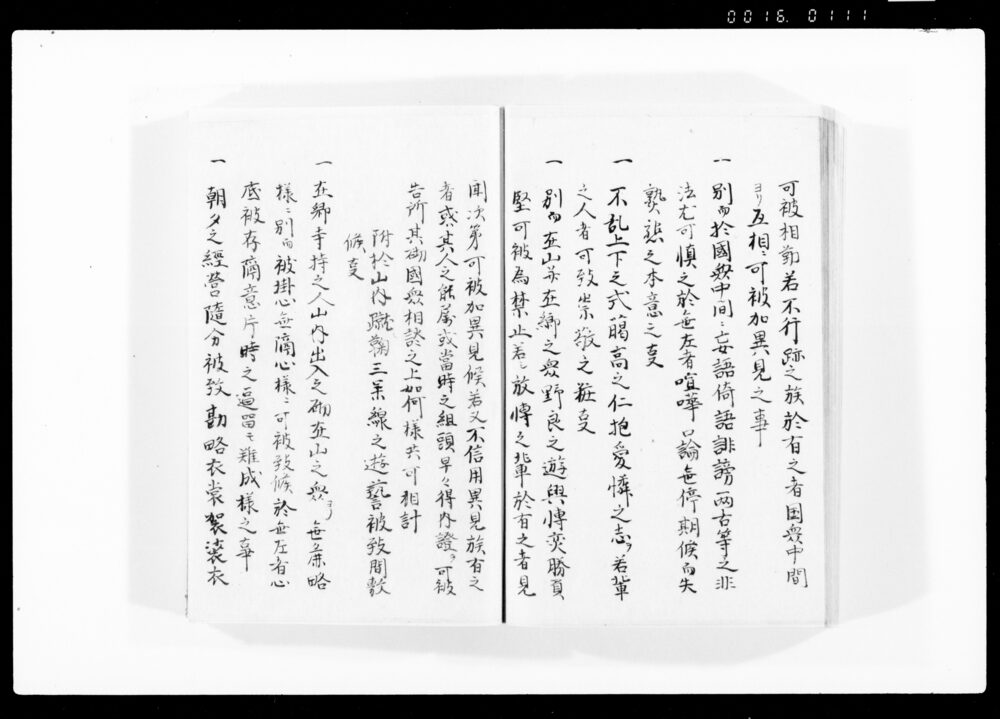 0016. 0111
可被相勤若不行跡之族於有之者国衆中間
ヨリ互相ニ可被加異見之事
一 別而於國衆中間ニ妄語倚語誹謗両舌等之非
法尤可慎之於無左者喧嘩口論無停期候而失
之本意之事
一 不乱上下之式蘭高之仁抱愛憐之志ヲ若輩
之人者可致崇敬之粧事
一 別而在山并在郷之衆野良之遊興博奕勝負
堅可被為禁止若シ放博之輩於有之者見
聞次第可被加異見候若又不信用異見族有之
者或其人之能属或當時之組頭早々得内證ヲ可被
告所其砌國衆相談之上如何様共可相計
附於山内蹴鞠三美線之遊藝被致間敷
候事
一 在郷寺持之人山内出入之砌在山之衆ヨリ無疎略
様ニ別而被掛心無隔心様ニ可被致候於無左者心
底被存隔意片時之逗留モ難成様之事
一 朝夕之經營隨分被致勘略衣裳袈裟衣